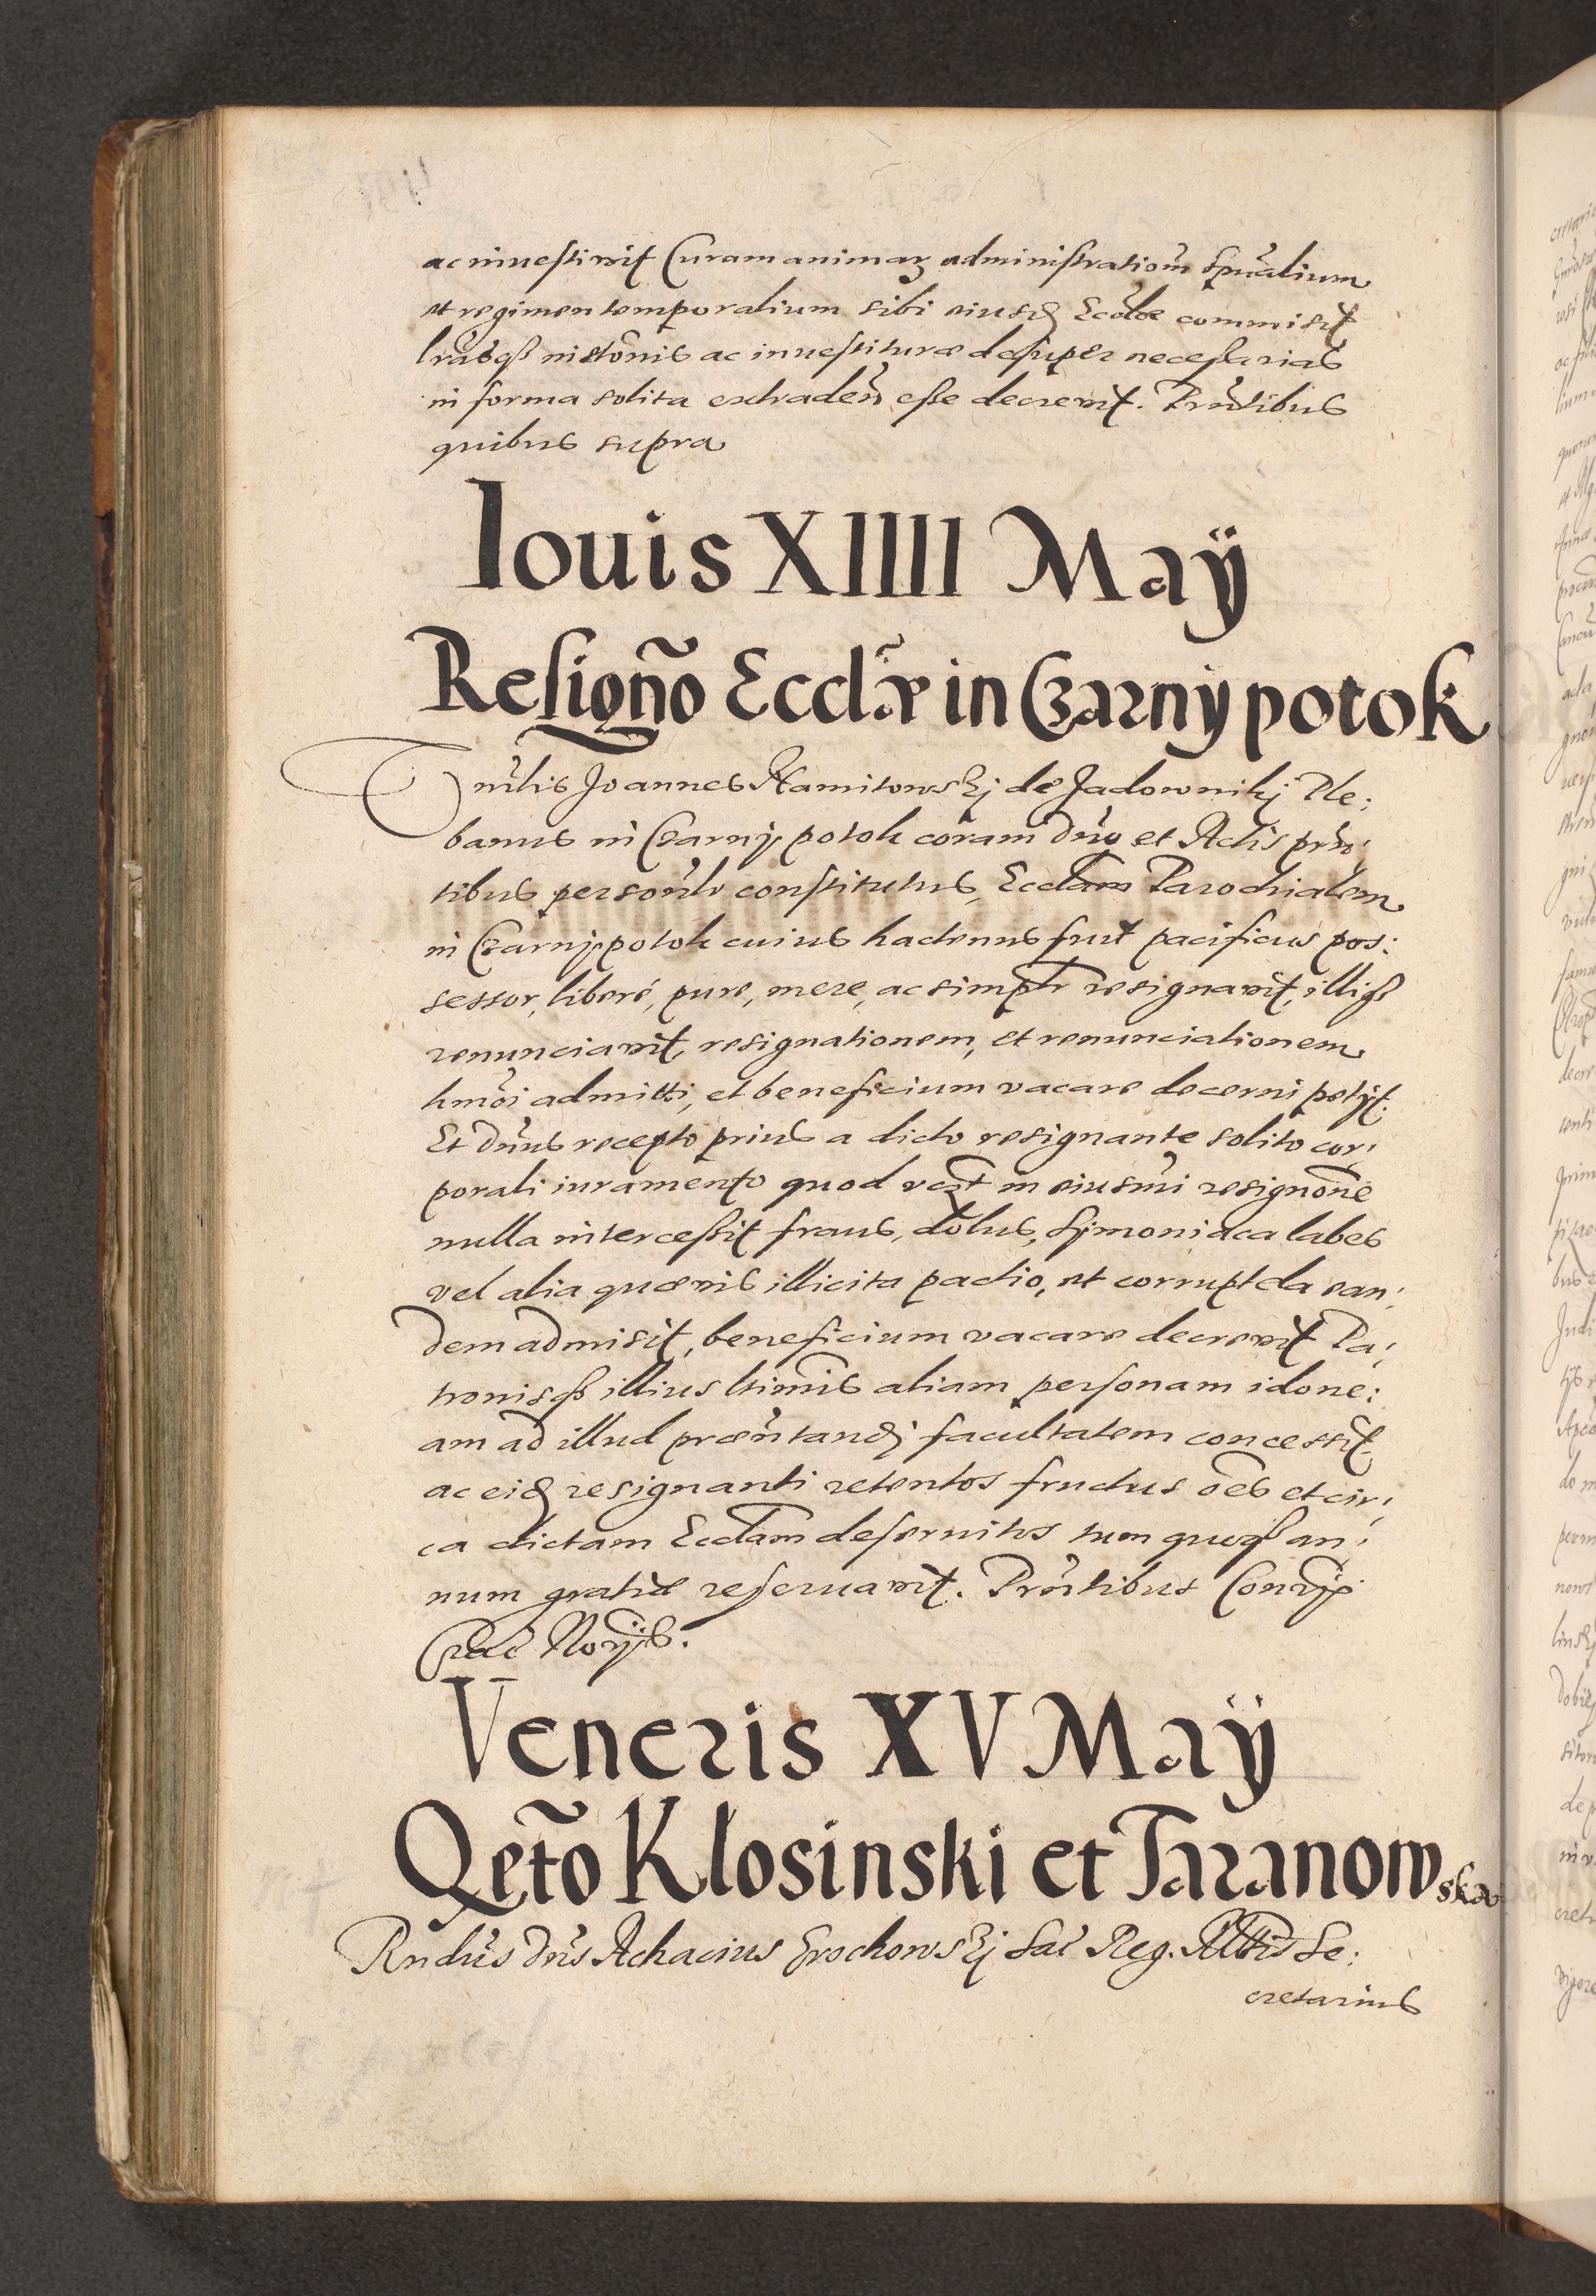 ac inuestiuit Curam animaꝝ administrationẽ Spũalium
et regimen temporalium sibi eiusd. Ecclæ commisit
lr̃asq̃ instõnis ac inuestituræ desuper necessarias
in forma solita extraden̄ esse decreuit. Prñtibus
quibus supra
Iouis XIIII Maÿ
Resigño Ecclæ in Czarnÿ potok
nr̃lis Joannes Stamirowskj de Jadownikj Ple:
banus in Czarnÿ potok coram dño et Actis prñ:
tibus personlr̃ constitutus, Ecclam Parochialem
in Czarnÿ potok cuius hactenus fuit pacificus pos:
sessor, liberé, pure, mere, ac simplr resignauit, illiq̃
renunciauit, resignationem, et renunciationem
hmõi admitti, et beneficium vacare decerni petÿt.
Et dñus recepto prius a dicto resignante solito cor:
porali iuramento quod in eiusmõi resignõne
nulla intercessit fraus, dolus, Sÿmoniaca labes
vel alia quæuis illicita pactio, et corruptela ean:
dem admisit, beneficium vacare decreuit Pa:
tronisq̃ illius ltimis aliam personam idone:
am ad illud præñtandj facultatem concessit,
ac eid. resignanti retentos fructus oẽs et cir:
ca dictam Ecclam deseruitos tum quoq̃ an:
num gratiæ reseruauit. Prñtibus
Crac̃ Norÿs.
Veneris XV Maÿ
Qetõ Klosinski et Taranowska
Rndus Dñs Achacius Grochowskj Sac̃ Reg. Mttis Se:
cretarius